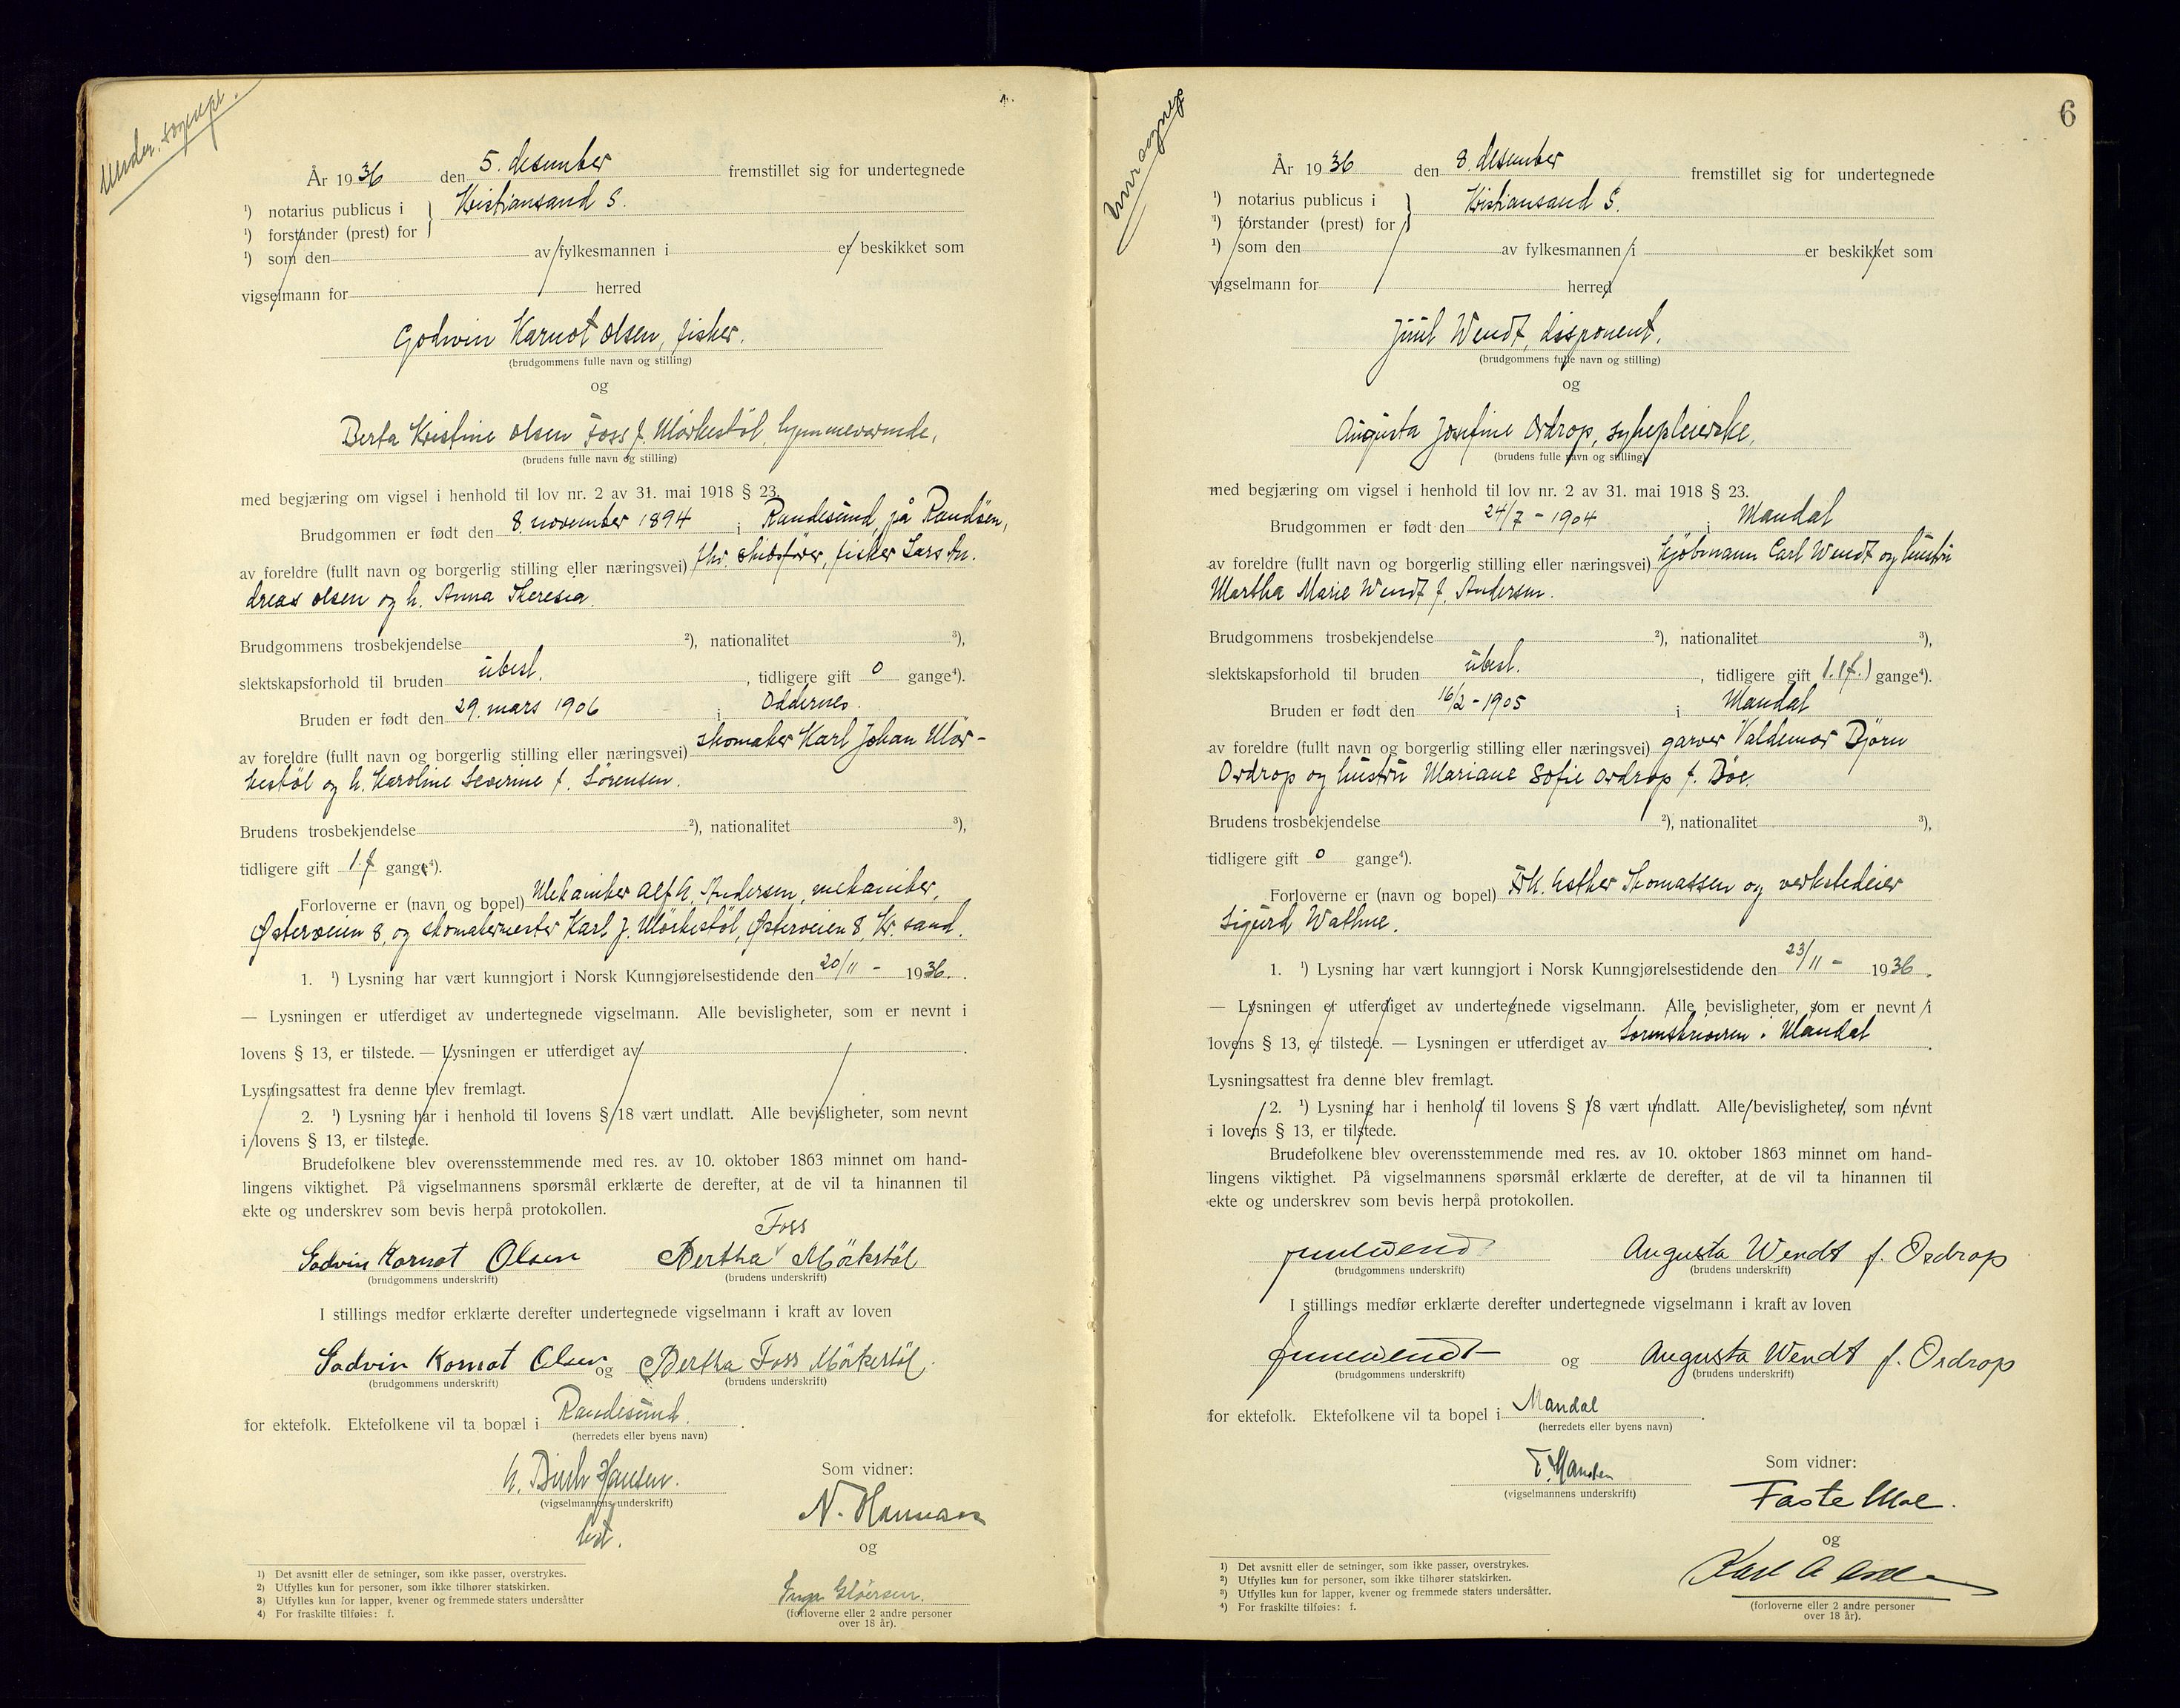 År 1936 den 5. desember fremstillet sig for undertegnede
¹) notarius publicus i } Kristiansand S.
¹) forstander (prest) for
¹) som den av fylkesmannen i er beskikket som
vigselmann for herred
Godwin Karnot Olsen, fisker.
(brudgommens fulle navn og stilling)
og
Berta Kristine Olsen Foss f. Mörkestöl, hjemmeværende,
(brudens fulle navn og stilling)
med begjæring om vigsel i henhold til lov nr. 2 av 31. mai 1918 § 23.
Brudgommen er født den 8. november 1894 i Randesund, på Randöen,
av foreldre (fullt navn og borgerlig stilling eller næringsvei) fhv. skibsfører, fisker Lars An-
dreas Olsen og h. Anna Theresia.
Brudgommens trosbekjendelse ²), nationalitet ³),
slektskapsforhold til bruden ubesl. , tidligere gift 0 gange⁴).
Bruden er født den 29. mars 1906 i Oddernes.
av foreldre (fullt navn og borgerlig stilling eller næringsvei) skomaker Karl Johan Mör-
kestöl og h. Karoline Severine f. Sörensen.
Brudens trosbekjendelse ²), nationalitet ³),
tidligere gift 1. f gange⁴).
Forloverne er (navn og bopel) Mekaniker Alf A. Andersen, mekaniker,
Østerveien 8, og skomakermester Karl J. Mörkestöl, Østerveien 8, Kr. sand.
1. ¹) Lysning har vært kunngjort i Norsk Kunngjørelsestidende den 20/11 - 1936.
— Lysningen er utferdiget av undertegnede vigselmann. Alle bevisligheter, som er nevnt i
lovens § 13, er tilstede. — Lysningen er utferdiget av .
Lysningsattest fra denne blev fremlagt.
2. ¹) Lysning har i henhold til lovens § 18 vært undlatt. Alle bevisligheter, som nevnt
i lovens § 13, er tilstede.
Brudefolkene blev overensstemmende med res. av 10. oktober 1863 minnet om hand-
lingens viktighet. På vigselmannens spørsmål erklærte de derefter, at de vil ta hinannen til
ekte og underskrev som bevis herpå protokollen.
Foss
Godvin Kornot Olsen Bertha Mörkstöl
(brudgommens underskrift) (brudens underskrift)
I stillings medfør erklærte derefter undertegnede vigselmann i kraft av loven
Godvin Kornot Olsen og Bertha Foss Mörkestöl.
(brudgommens underskrift) (brudens underskrift)
for ektefolk. Ektefolkene vil ta bopæl i Randesund.
(herredets eller byens navn)
Hansen.
(vigselmannens underskrift)
Som vidner:
N. Hannaas
og
Inga Glöersen.
(forloverne eller 2 andre personer
over 18 år).
1) Det avsnitt eller de setninger, som ikke passer, overstrykes.
2) Utfylles kun for personer, som ikke tilhører statskirken.
3) Utfylles kun for lapper, kvener og fremmede staters undersåtter
4) For fraskilte tilføies: f.
6
År 1936 den 8. desember fremstillet sig for undertegnede
¹) notarius publicus i } Kristiansand S.
¹) forstander (prest) for
¹) som den av fylkesmannen i er beskikket som
vigselmann for herred
Juul Wendt, disponent,
(brudgommens fulle navn og stilling)
og
Augusta Josefine Ordrop, sykepleierske,
(brudens fulle navn og stilling)
med begjæring om vigsel i henhold til lov nr. 2 av 31. mai 1918 § 23.
Brudgommen er født den 24/7 - 1904 i Mandal
av foreldre (fullt navn og borgerlig stilling eller næringsvei) kjöbmann Carl Wendt og hustru
Martha Marie Wendt f. Andersen.
Brudgommens trosbekjendelse ²), nationalitet ³),
slektskapsforhold til bruden ubesl. , tidligere gift 1. (f.) gange⁴).
Bruden er født den 16/2 - 1905 i Mandal
av foreldre (fullt navn og borgerlig stilling eller næringsvei) garver Valdemar Björn
Ordrop og hustru Mariane Sofie Ordrop f. Böe.
Brudens trosbekjendelse ²), nationalitet ³),
tidligere gift 0 gange⁴).
Forloverne er (navn og bopel) Frk. Esther Thomassen og verkstedeier
Sigurd Wathne.
1. ¹) Lysning har vært kunngjort i Norsk Kunngjørelsestidende den 23/11 - 1936.
— Lysningen er utferdiget av undertegnede vigselmann. Alle bevisligheter, som er nevnt i
lovens § 13, er tilstede. — Lysningen er utferdiget av Sorenskriveren i Mandal .
Lysningsattest fra denne blev fremlagt.
2. ¹) Lysning har i henhold til lovens § 18 vært undlatt. Alle bevisligheter, som nevnt
i lovens § 13, er tilstede.
Brudefolkene blev overensstemmende med res. av 10. oktober 1863 minnet om hand-
lingens viktighet. På vigselmannens spørsmål erklærte de derefter, at de vil ta hinannen til
ekte og underskrev som bevis herpå protokollen.
Juulwendt Augusta Wendt f. Ordrop
(brudgommens underskrift) (brudens underskrift)
I stillings medfør erklærte derefter undertegnede vigselmann i kraft av loven
Juulwendt og Augusta Wendt f. Ordrop
(brudgommens underskrift) (brudens underskrift)
for ektefolk. Ektefolkene vil ta bopel i Mandal .
(herredets eller byens navn)
(vigselmannens underskrift)
Som vidner:
Faste Moe.
og
Karl A
(forloverne eller 2 andre personer
over 18 år).
1) Det avsnitt eller de setninger, som ikke passer, overstrykes.
²) Utfylles kun for personer, som ikke tilhører statskirken.
³) Utfylles kun for lapper, kvener og fremmede staters undersåtter.
⁴) For fraskilte tilføies: f.